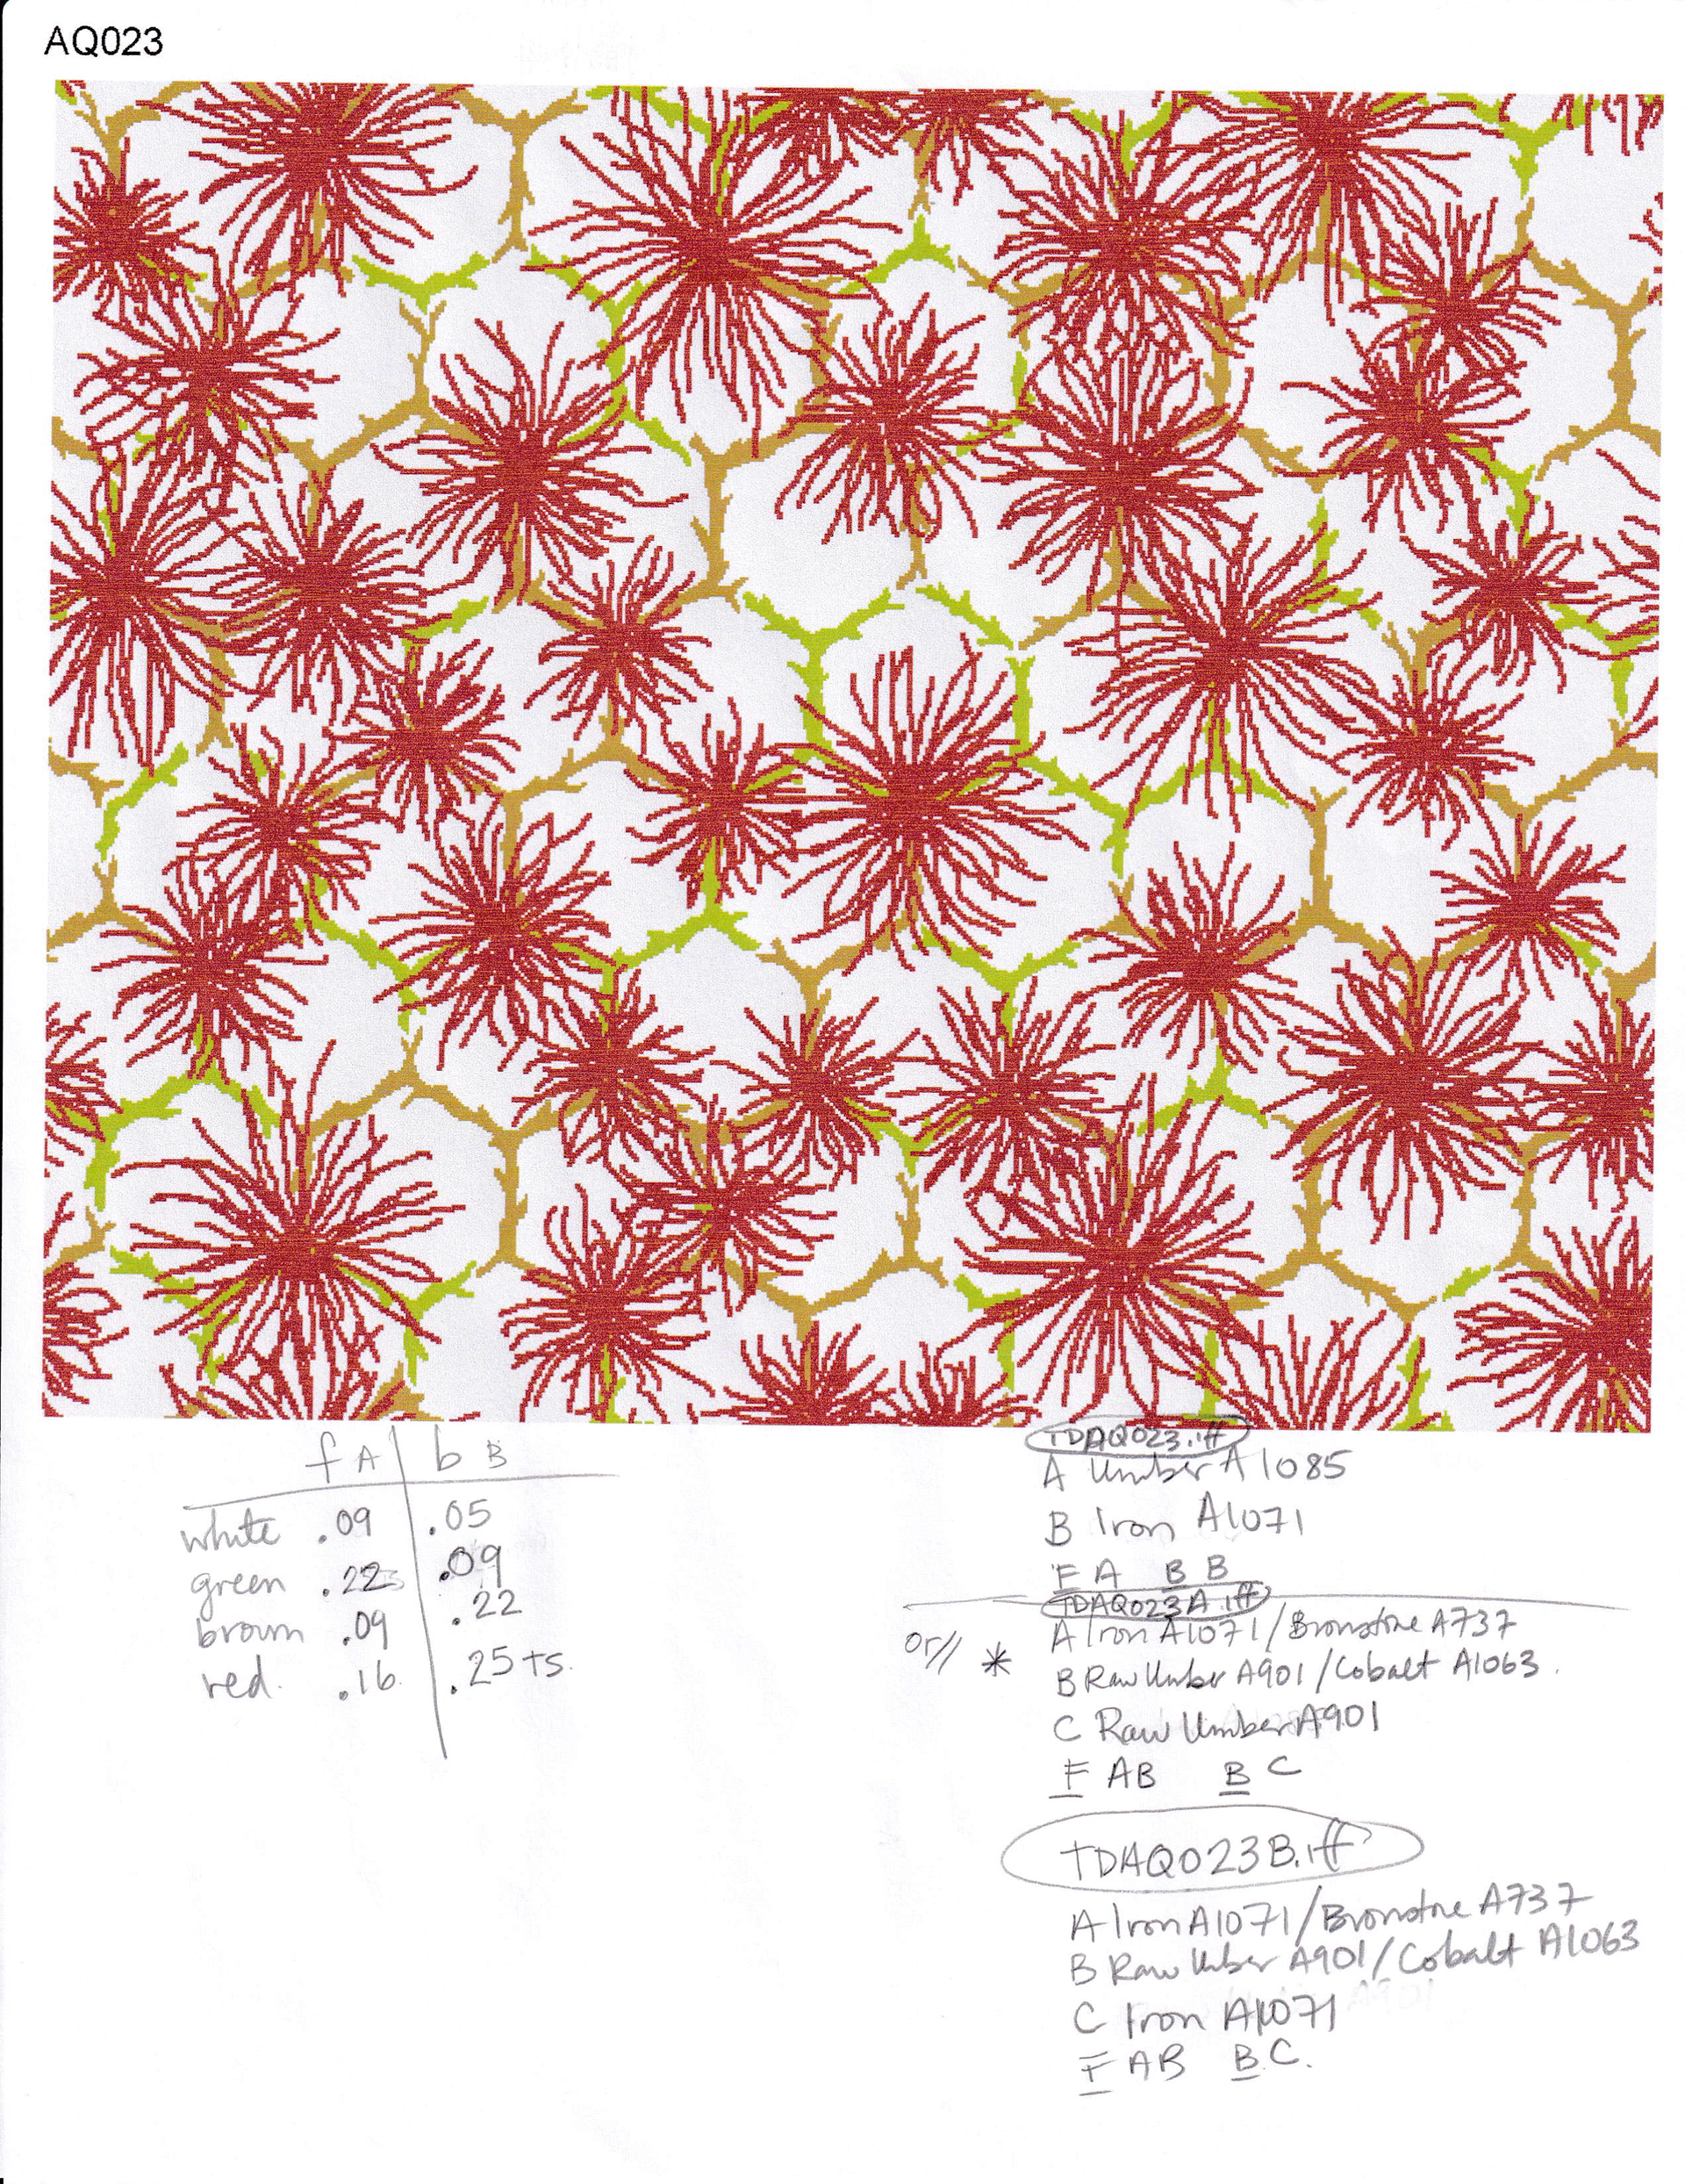 AQ023
f A | b B
white .09 | .05
green .22 | .09
brown .09 | .22
red. .16 | .25 ts.
TDAQ023.iff
A Umber A1085
B Iron A1071
F A B B
TDAQ023A.iff
or// * A Iron A1071/Bronstone A737
B Raw Umber A901/Cobalt A1063.
C Raw Umber A901
F AB B C
TDAQ023B.iff
A Iron A1071/Bronstone A737
B Raw Umber A901/Cobalt A1063
C Iron A1071
F AB B C.